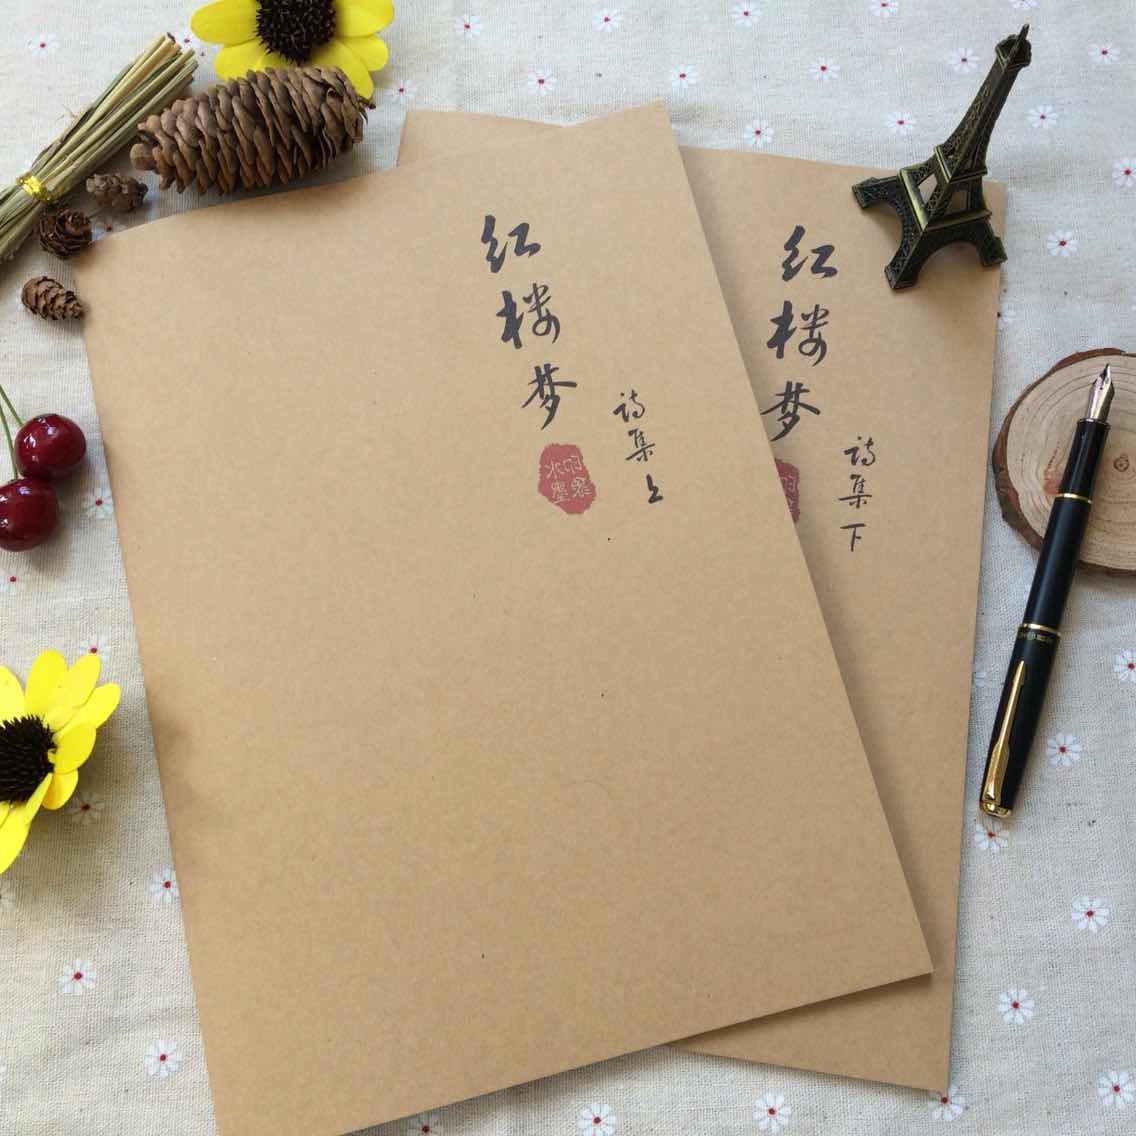 红楼梦
诗集上
水墨印象
红楼梦
诗集下